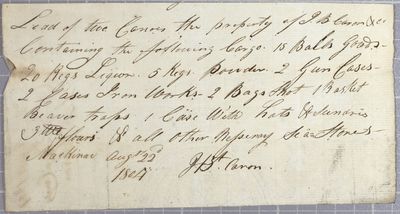 Load of two Canoes the property of J B Caron & Co
Containing the following Cargo. 15 Bales Goods
20 Kegs Liquor. 5 Kegs Powder. 2 Gun Cases
2 Cases Iron Works 2 Bags Shot 1 Basket
Beaver traps 1 Case With hats & Sundries
flours & all other Nessesary Sea Stores
Mackinac Augt 22d
1804 J Bt Caron.